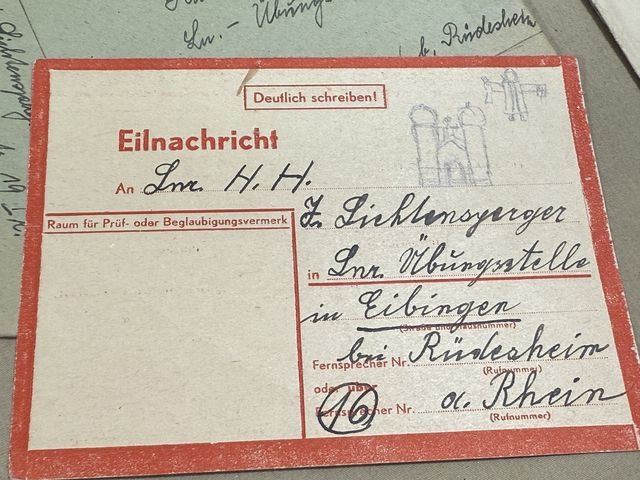 Ln.- Übung
b. Rüdesheim
Deutlich schreiben!
Eilnachricht
An Lnr. H. H.
Raum für Prüf- oder Beglaubigungsvermerk
Z. Lichtensperger
in Lnr. Übungsstelle
in Eibingen
(Straße und Hausnummer)
Fernsprecher Nr. bei Rüdesheim
(Rufnummer)
oder über
16
Fernsprecher Nr. a. Rhein
(Rufnummer)